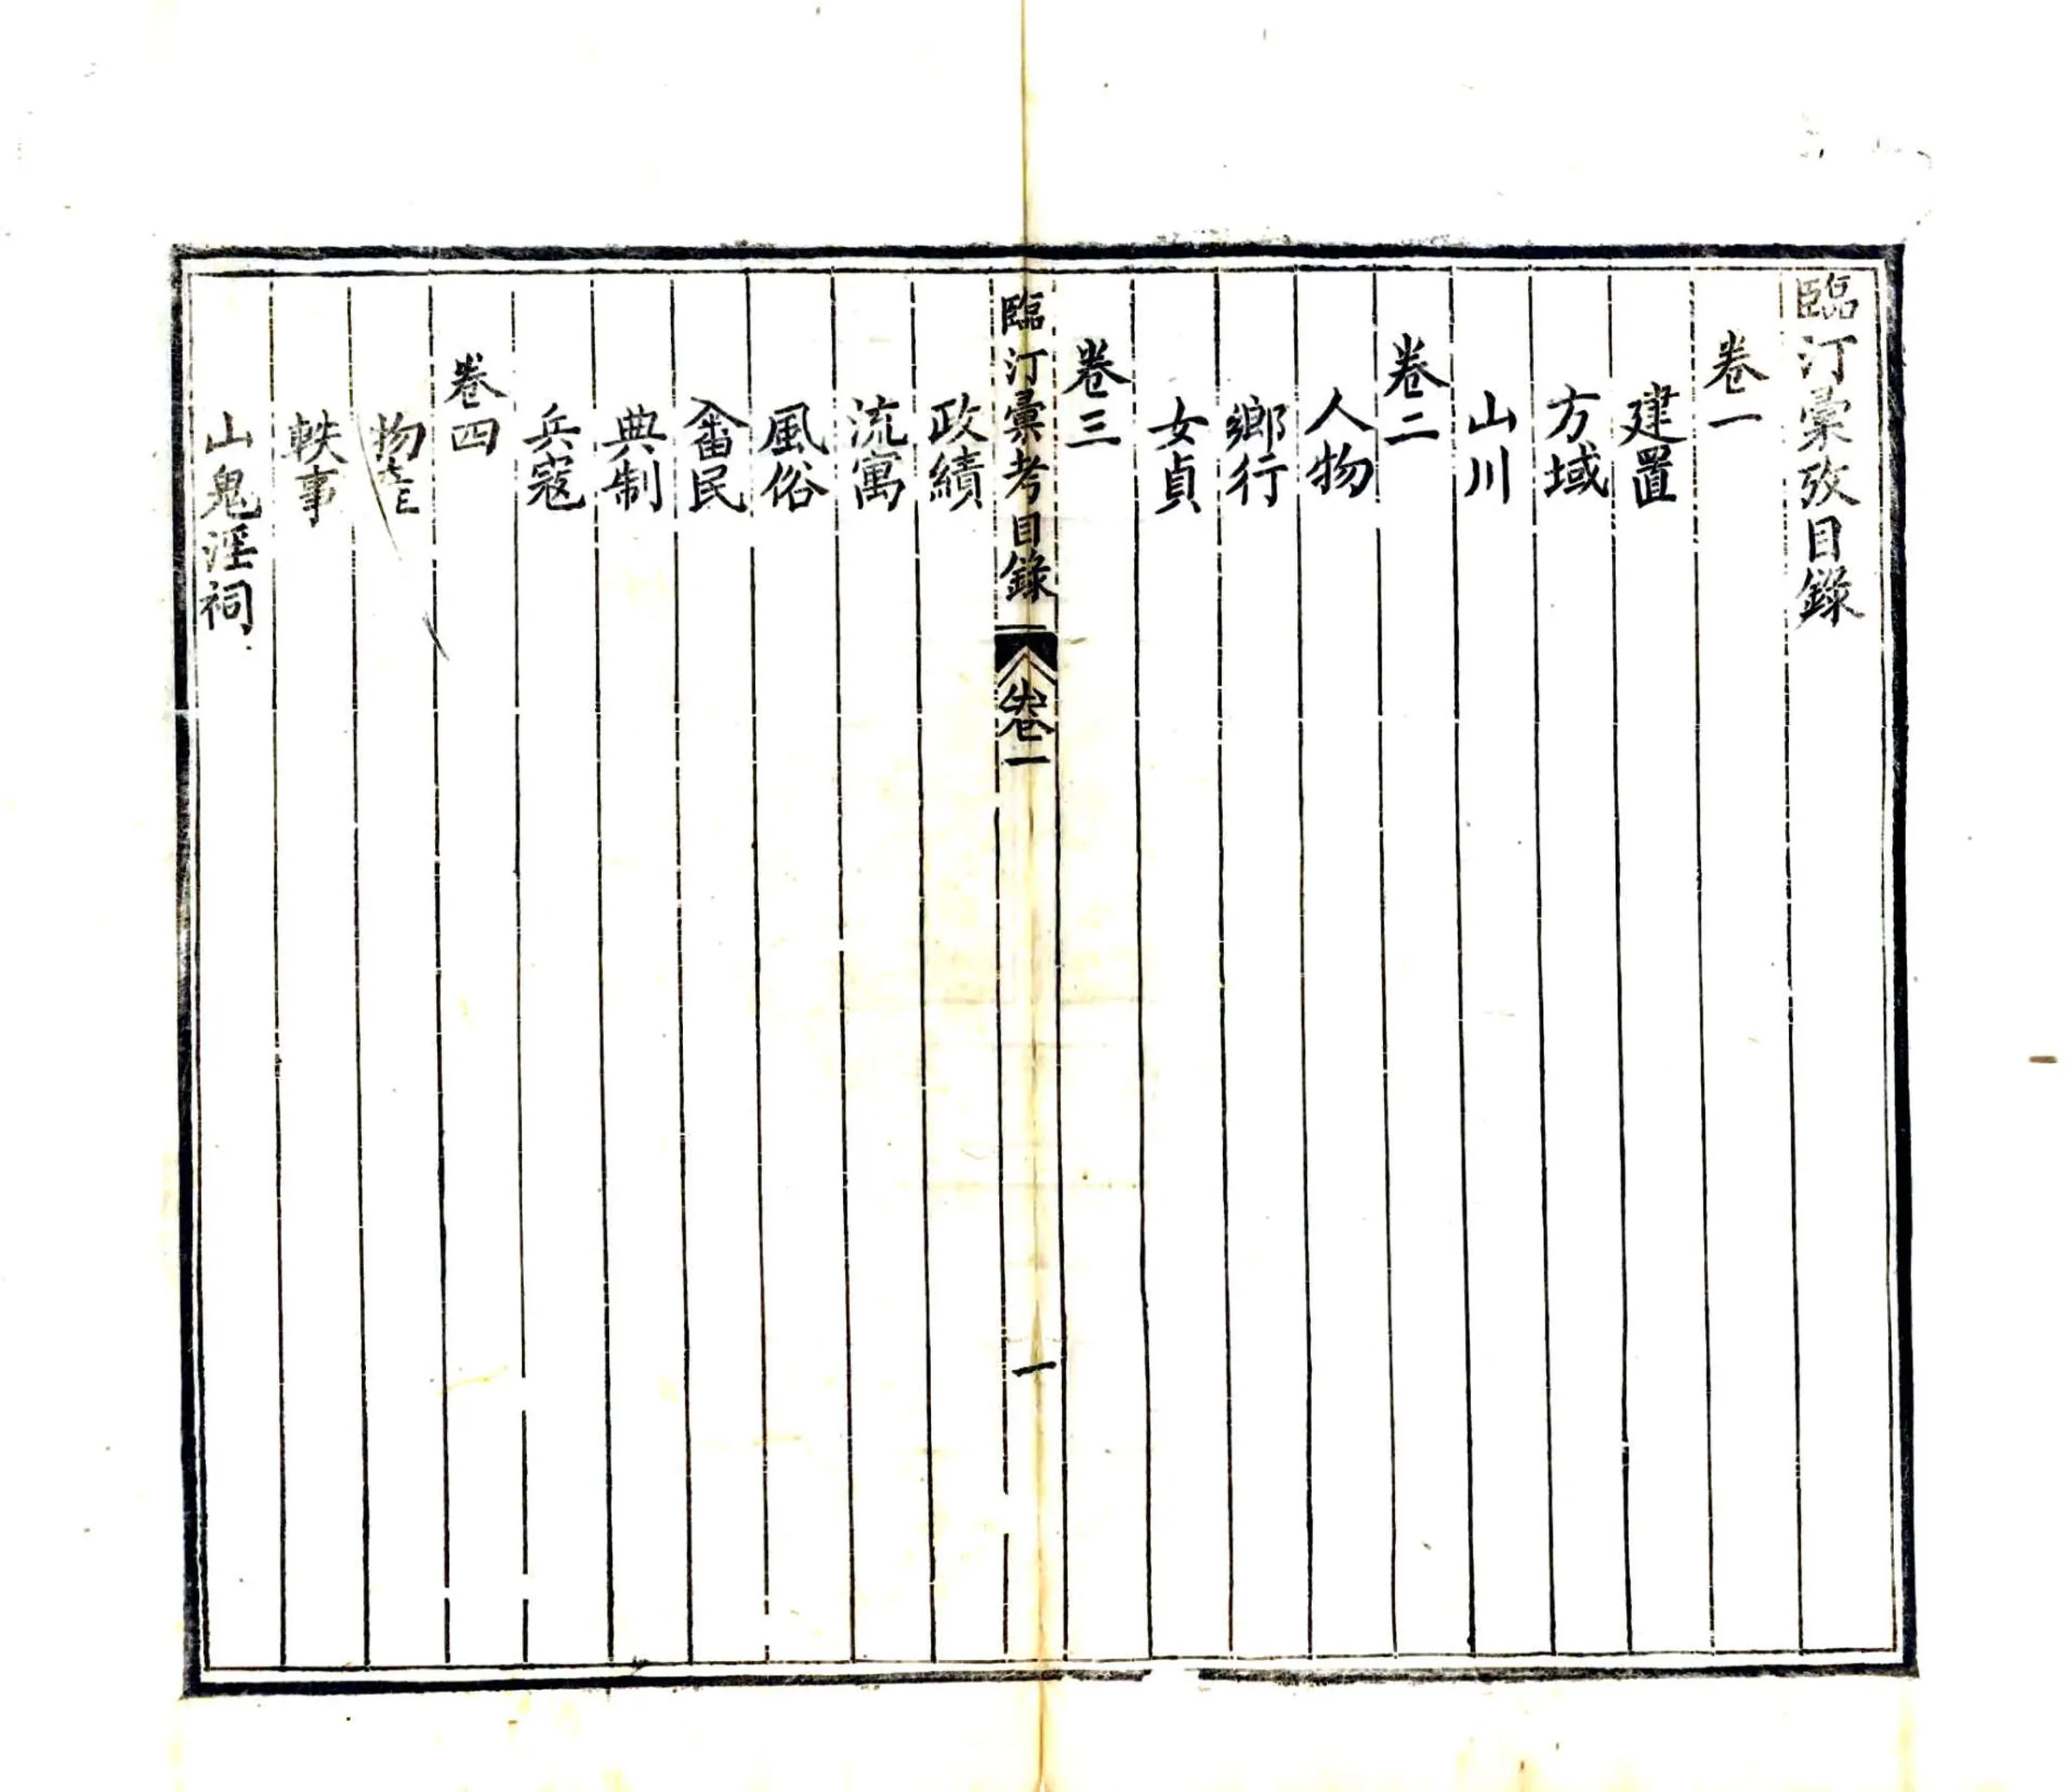 臨汀彙攷目錄
卷一
建置
方域
山川
卷二
人物
鄉行
女貞
卷三
臨汀彙考目錄
卷一
一
政績
流寓
風俗
畬民
典制
兵寇
卷四
物
軼事
山鬼淫祠